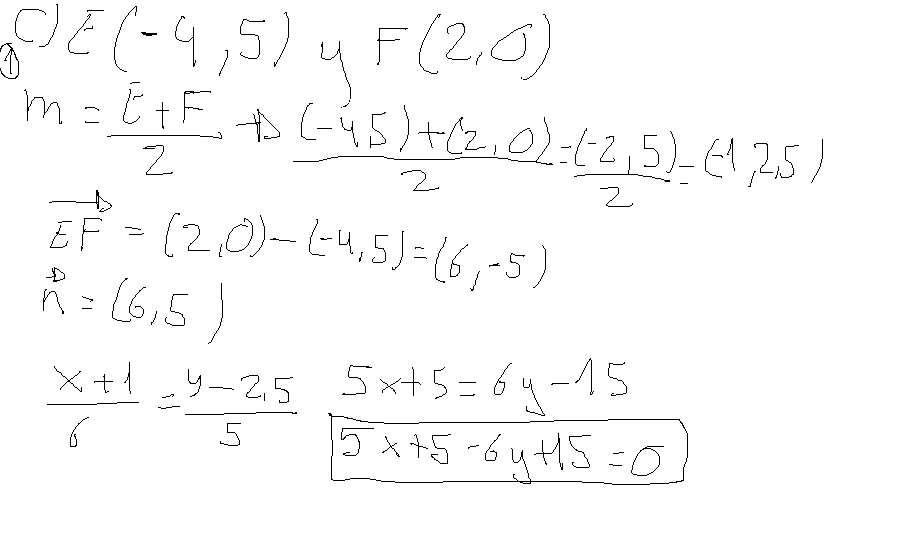 c) E(-4,5) y F(2,0)
1
m = E+F/2 → (-4 5)+(2,0)/2 = (-2,5)/2 = (-1,2,5)
EF = (2,0)-(-4,5)=(6,-5)
n = (6,5)
x+1/6 = y-2,5/5 5x+5=6y-15
5x+5-6y+15=0